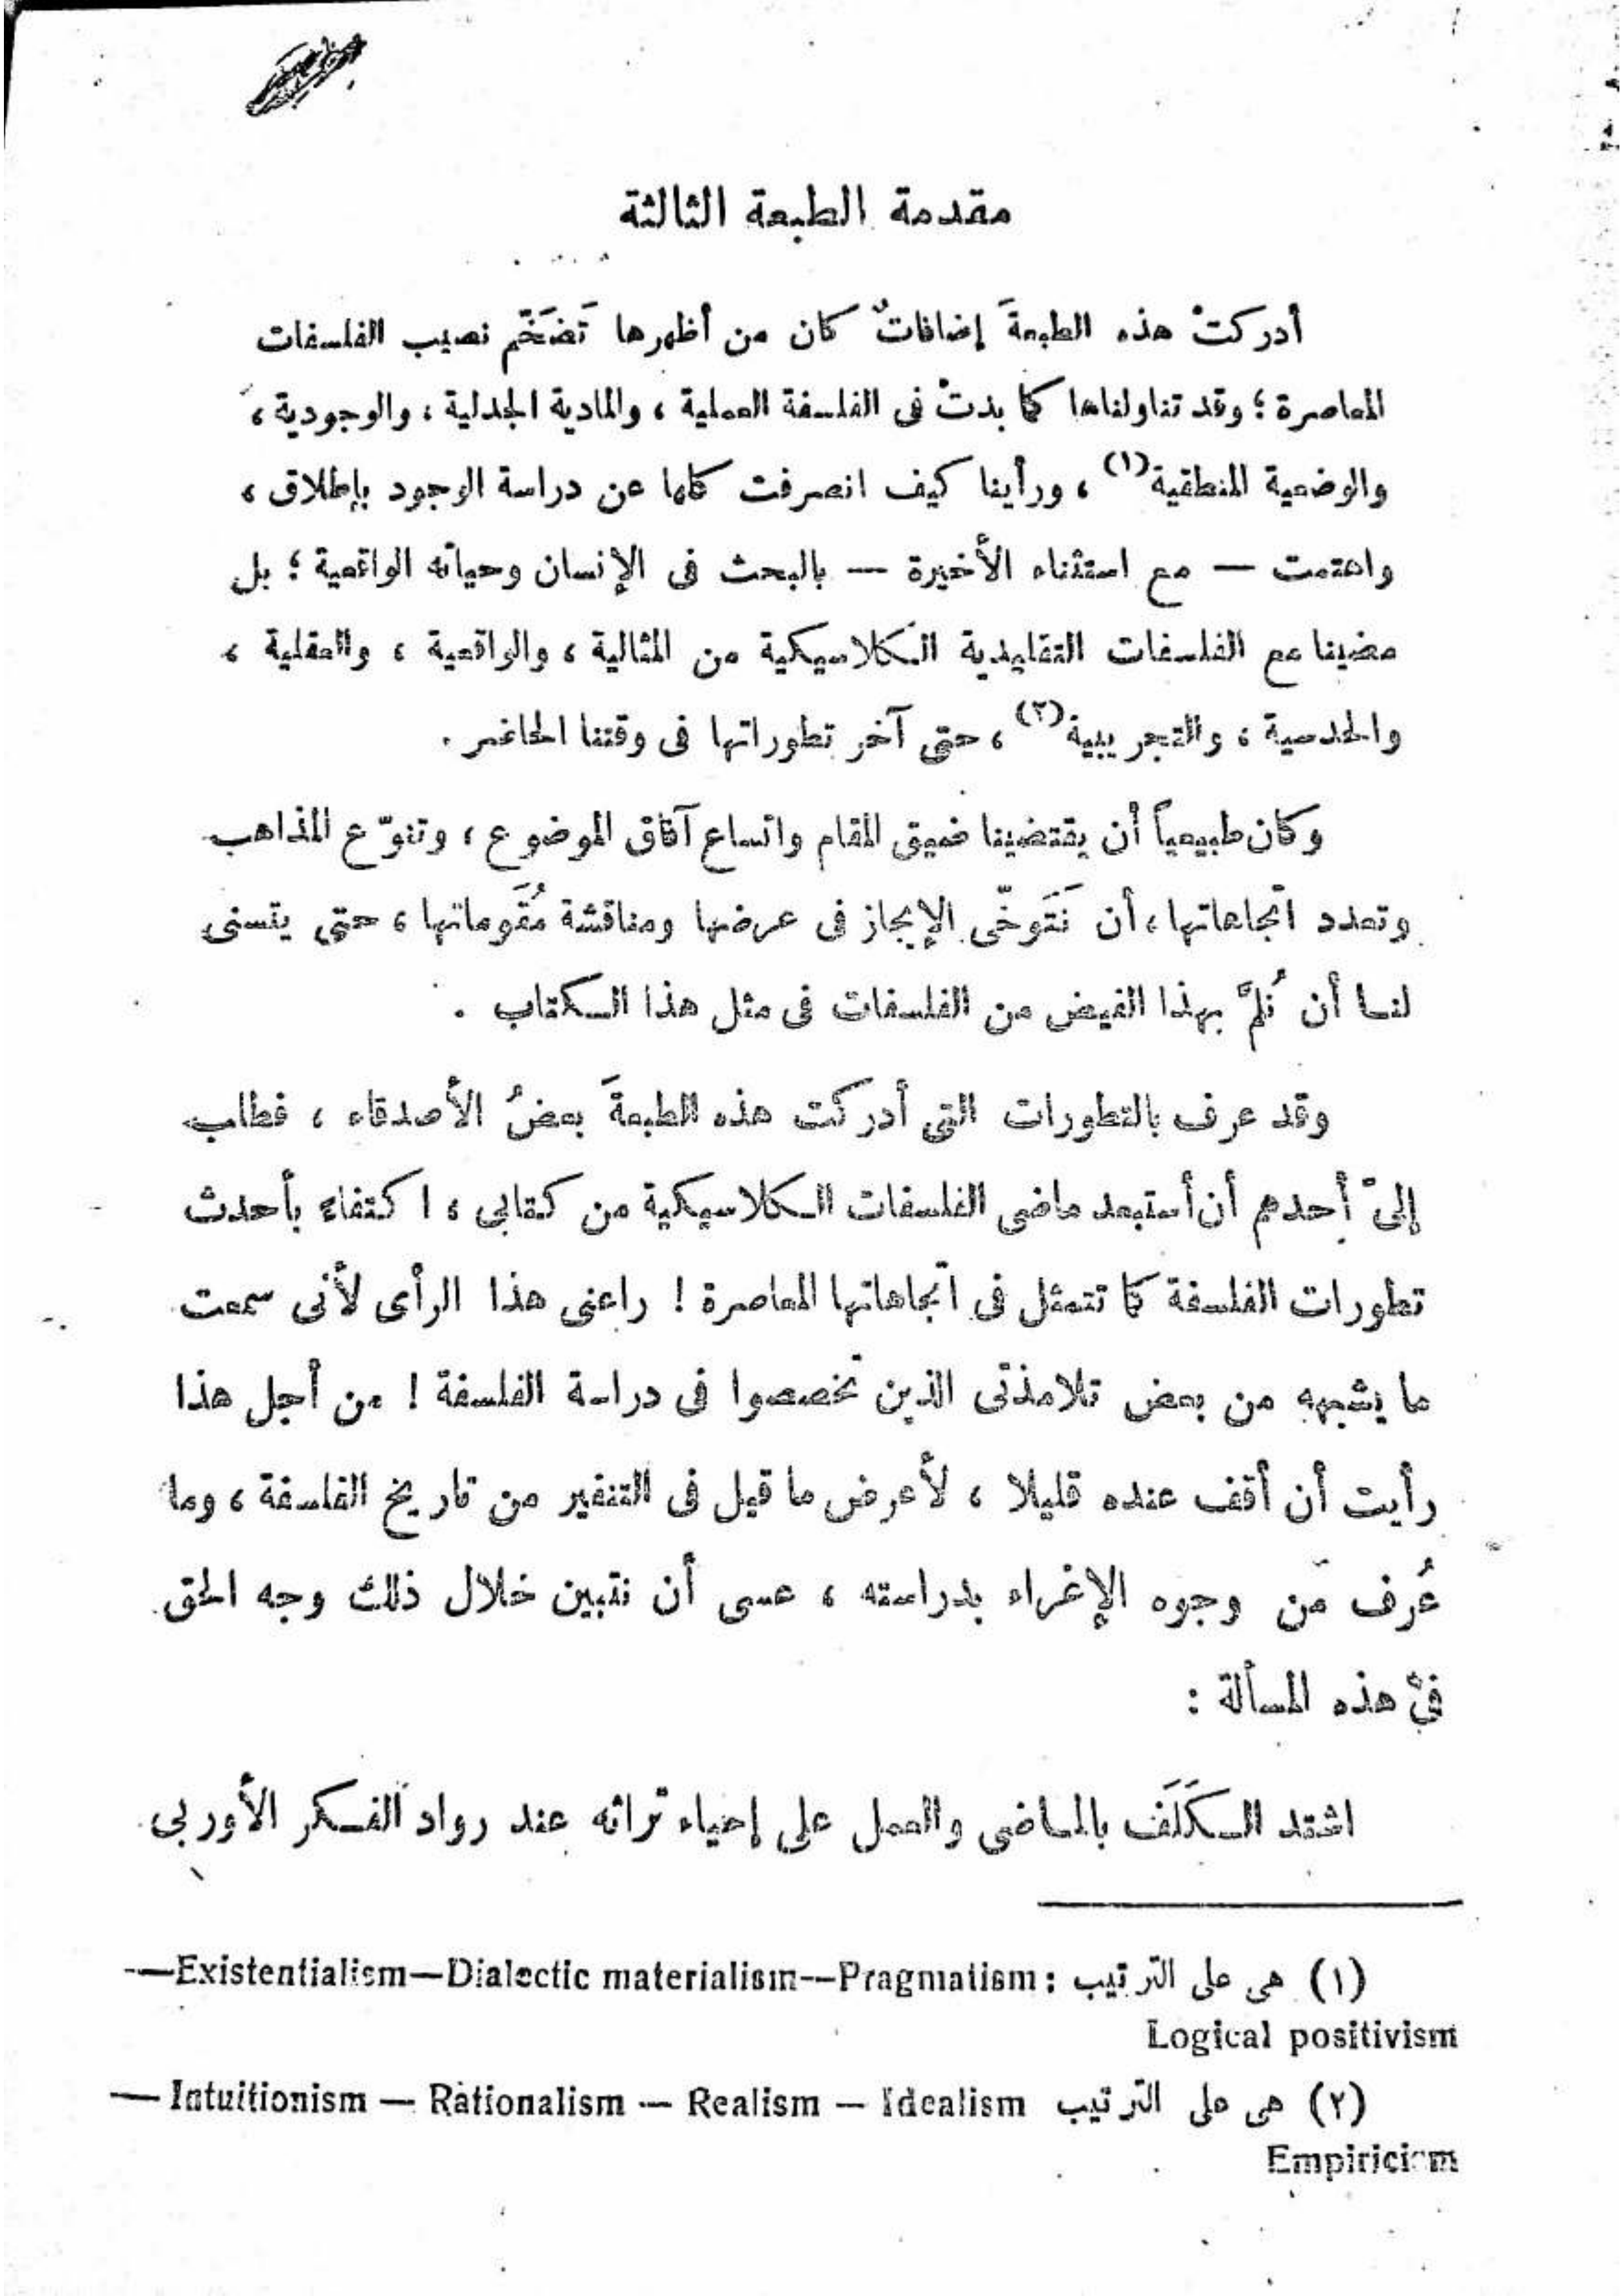 مقدمة الطبعة الثالثة
أدركتْ هذه الطبعةَ إضافاتٌ كان من أظهرها تَضَخّم نصيب الفلسفات
المعاصرة ؛ وقد تناولناها كما بدتْ فى الفلسفة العملية ، والمادية الجدلية ، والوجودية ،
والوضعية المنطقية(١) ، ورأينا كيف انصرفت كلها عن دراسة الوجود بإطلاق ،
واهتمت — مع استثناء الأخيرة — بالبحث فى الإنسان وحياته الواقعية ؛ بل
مضينا مع الفلسفات التقليدية الكلاسيكية من المثالية ، والواقعية ، والعقلية ،
والحدسية ، والتجريبية(٢) ، حتى آخر تطوراتها فى وقتنا الحاضر .
وكان طبيعياً أن يقتضينا ضيق المقام واتساع آفاق الموضوع ، وتنوّع المذاهب
وتعدد اتجاهاتها ، أن نَتَوخّى الإيجاز فى عرضها ومناقشة مُقَوماتها ، حتى يتسنى
لنا أن نُلمَّ بهذا الفيض من الفلسفات فى مثل هذا الكتاب .
وقد عرف بالتطورات التى أدركت هذه الطبعةَ بعضُ الأصدقاء ، فطلب
إلىّ أحدهم أن أستبعد ماضى الفلسفات الكلاسيكية من كتابى ، اكتفاءً بأحدث
تطورات الفلسفة كما تتمثل فى اتجاهاتها المعاصرة ! راعنى هذا الرأى لأنى سمعت
ما يشبهه من بعض تلامذتى الذين تخصصوا فى دراسة الفلسفة ! من أجل هذا
رأيت أن أقف عنده قليلا ، لأعرض ما قيل فى التنفير من تاريخ الفلسفة ، وما
عُرف من وجوه الإغراء بدراسته ، عسى أن نتبين خلال ذلك وجه الحق
فى هذه المسألة :
اشتد الكَلَف بالماضى والعمل على إحياء تراثه عند رواد الفكر الأوربى
(١) هى على الترتيب : Pragmatism—Dialectic materialism—Existentialism—
Logical positivism
(٢) هى على الترتيب Idealism — Realism — Rationalism — Intuitionism —
Empiricism